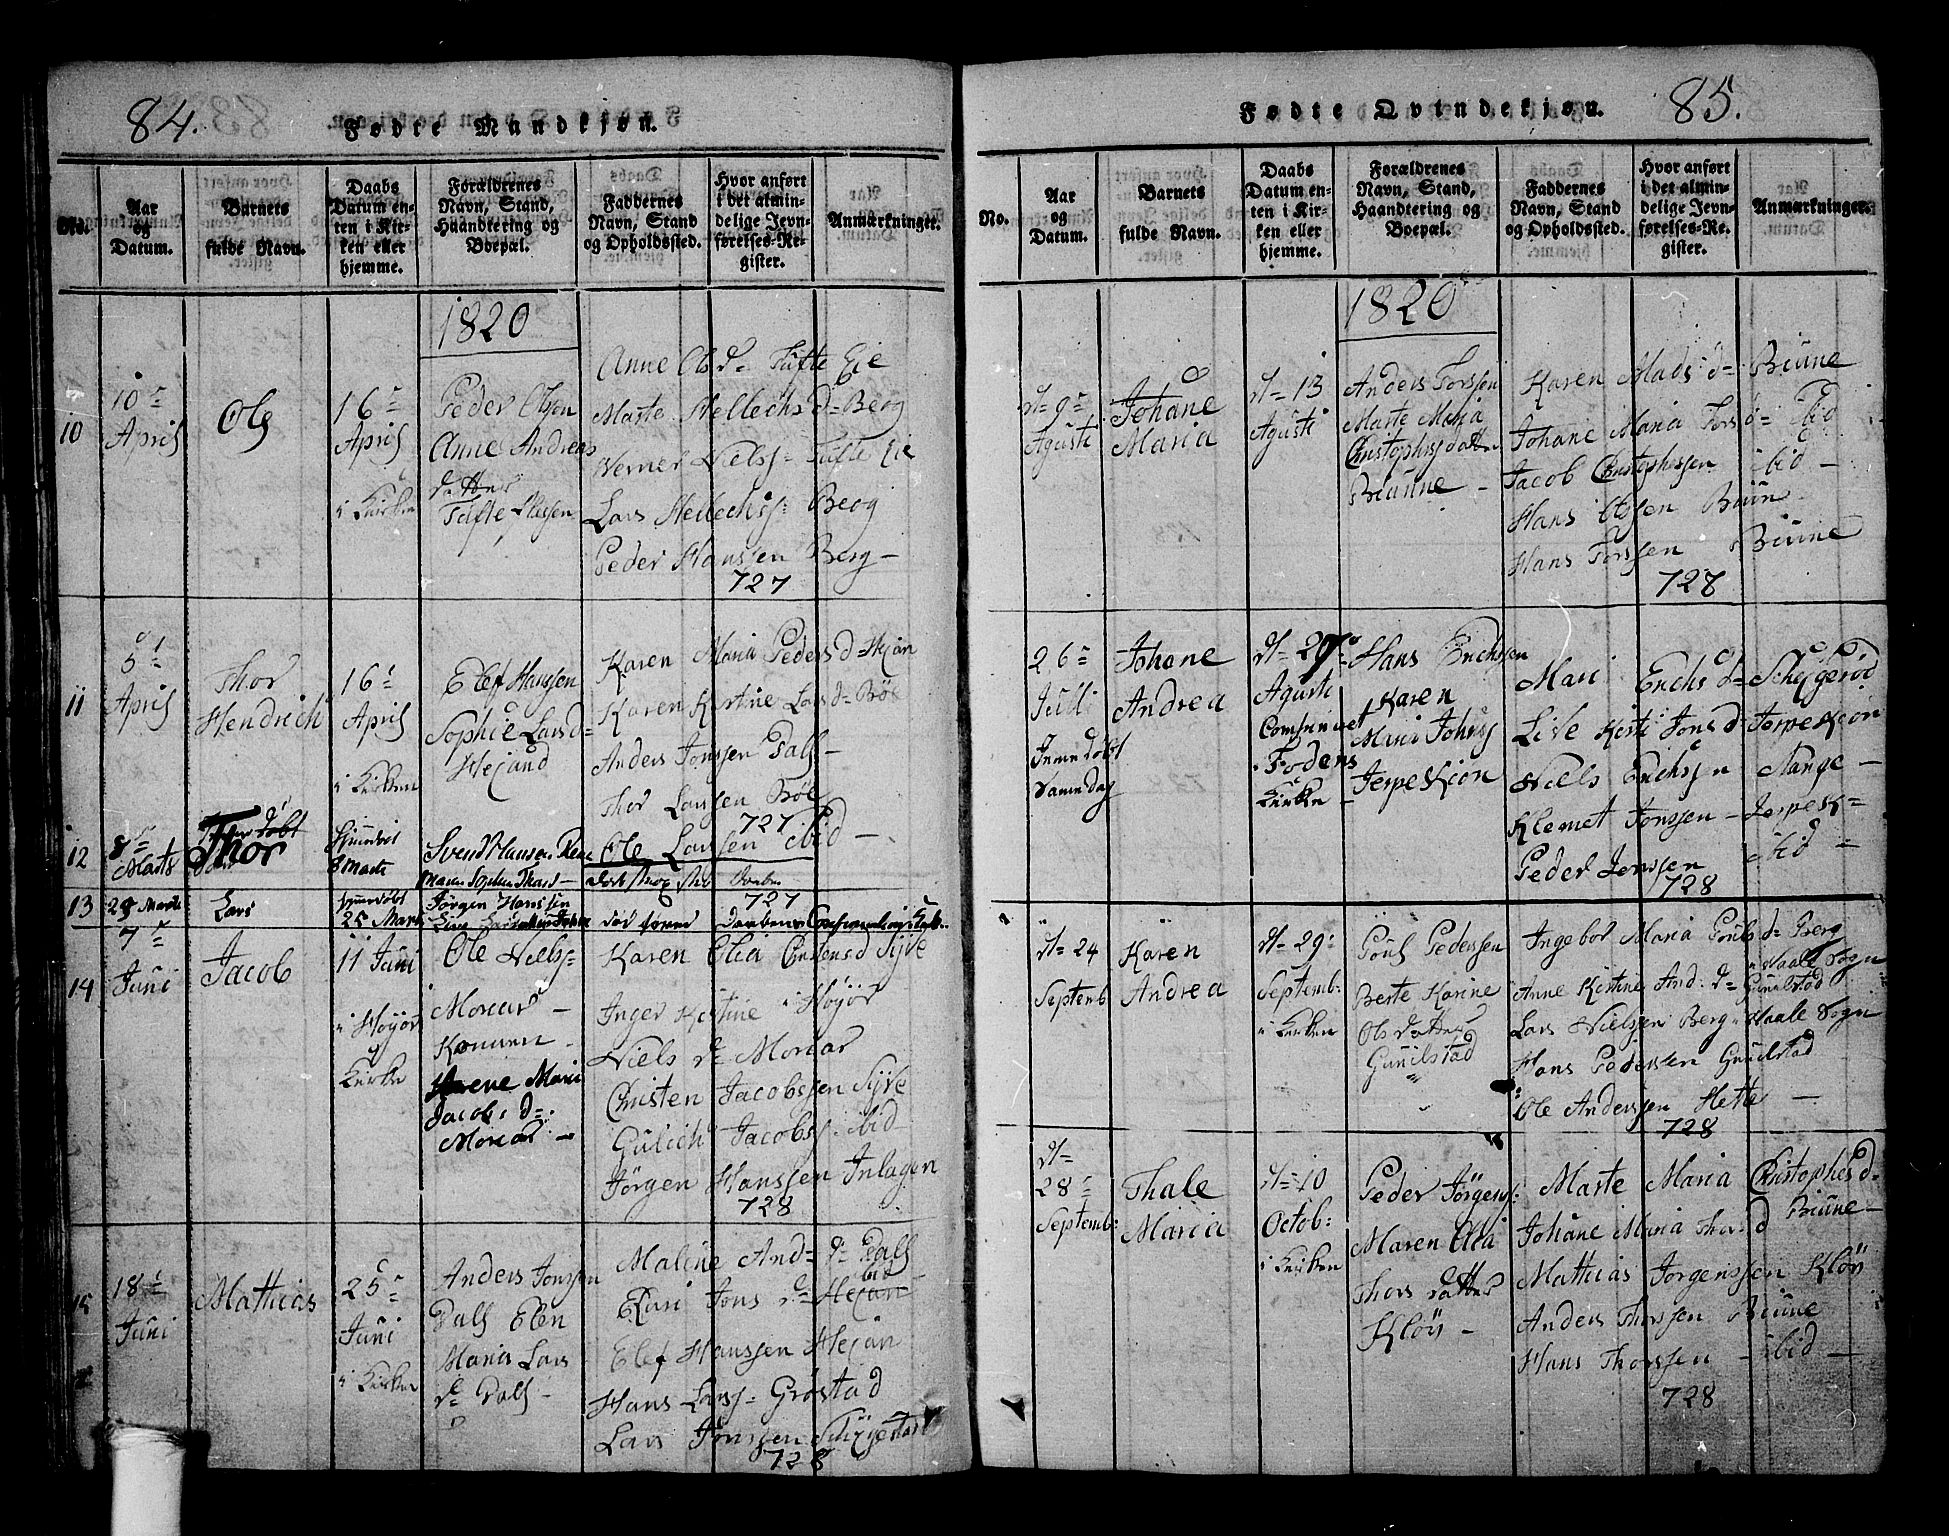 84.
Fødte Mandkjøn.
No.
Aar og Datum.
Barnets fulde Navn.
Daabs Datum enten i Kirken eller hjemme.
Forældrenes Navn, Stand, Haandtering og Boepæl.
Faddernes Navn, Stand og Opholdssted.
Hvor anført i det almindelige Jevnførelses-Register.
Anmærkninger.
1820
10
10
April
Ole
16
April
i Kirken
Peder Olsen
Anne Andreas
datter
Tufte
Anne Ols d= Tufte Eie
Marte Hellechs d= Berg
Werner Niels: Tufte Eie
Lars Hellechs: Berg
Peder Hanssen Berg –
727
11
5
April
Thor
Hendrich
16
April
i Kirken
Elef Hanssen
Sophie Lars d=
Hejand
Karen Maria Peders d= Hejan
Karen Kirstine Lars d= Bröe
Anders Jonssen Dals –
Thor Larssen Bröe
727
Ole Larssen ibid –
12
8
Marts
Thor
8 Marts
Svend Hansen
13
Lars
25 Marts
Jørgen Hanssen
727
14
7
Juni
Jacob
11 Juni
i Høyör
Kirke
Ole Niels=
Morear –
Konnen –
Maria
Jacobs d=
Morear –
Karen Olea Christens d Syve
Inger Kirstine i Höyör
Niels d= Morear
Christen Jacobssen Syve
Gulich Jacobs: ibid
Jörgen Hanssen Inlagen
728
15
18
Juni
Mathias
25
Juni
i Kirken
Anders Jonssen
Dals Elen
Maria Lars
d= Dals –
Maline And= d= Dals
Kari Jons d= Hejan ibid
Elef Hanssen Hejan
Hans Lars: Gröstad
Lars Jonssen
728
85.
Fødte Qvindekjøn.
No.
Aar og Datum.
Barnets fulde Navn.
Daabs Datum enten i Kirken eller hjemme.
Forældrenes Navn, Stand, Haandtering og Boepæl.
Faddernes Navn, Stand og Opholdssted.
Hvor anført i det almindelige Jevnførelses-Register.
Anmærkninger.
1820
d= 9
Agusti
Johane
Maria
d= 13
Agusti
Anders Torssen
Marte Maria
Christophersdatter
Bruune –
Karen Mads d= Bruune
Johane Maria Tors d= ibid
Jacob Christophersen ibid –
Hans Olssen Bruun –
Hans Torssen Bruune
728
26
Julii
Johane
Andrea
d= 27
Agusti
i Fodens
Kirke –
Hans Erichssen
Karen
Maria Johns
Jerpekiön
Mari Erichs d= Schejgeröd
Live Kirsti Jons d= Jerpekiön
Niels Erichssen Nange –
Klemet Jonssen – Jerpek=
Peder Jonssen ibid –
728
d= 24
Septemb
Karen
Andrea
d= 29
Septemb:
i Kirken
Pouls Pedersen
Berte Karine
Olsdatter
Gunilstad
Ingebor Maria Pouls d= Berg
i Vaale Sogn
Anne Kirstine And: d= Gunilstad
Lars Nielsen Berg i Vaale Sogn
Hans Pedersen Gunilstad
Ole Anderssen Hette –
728
d=
28
Septemb:
Thale
Maria
d= 10
Octob:
i Kirken
Peder Jörgens:
Maren Olea
Thors datter
Klöv –
Marte Maria Christophes d=
Bruune –
Johane Maria Thors d
Mathias Jörgenssen Klöv
Anders Thorssen Bruune
Hans Thorssen – ibid –
728